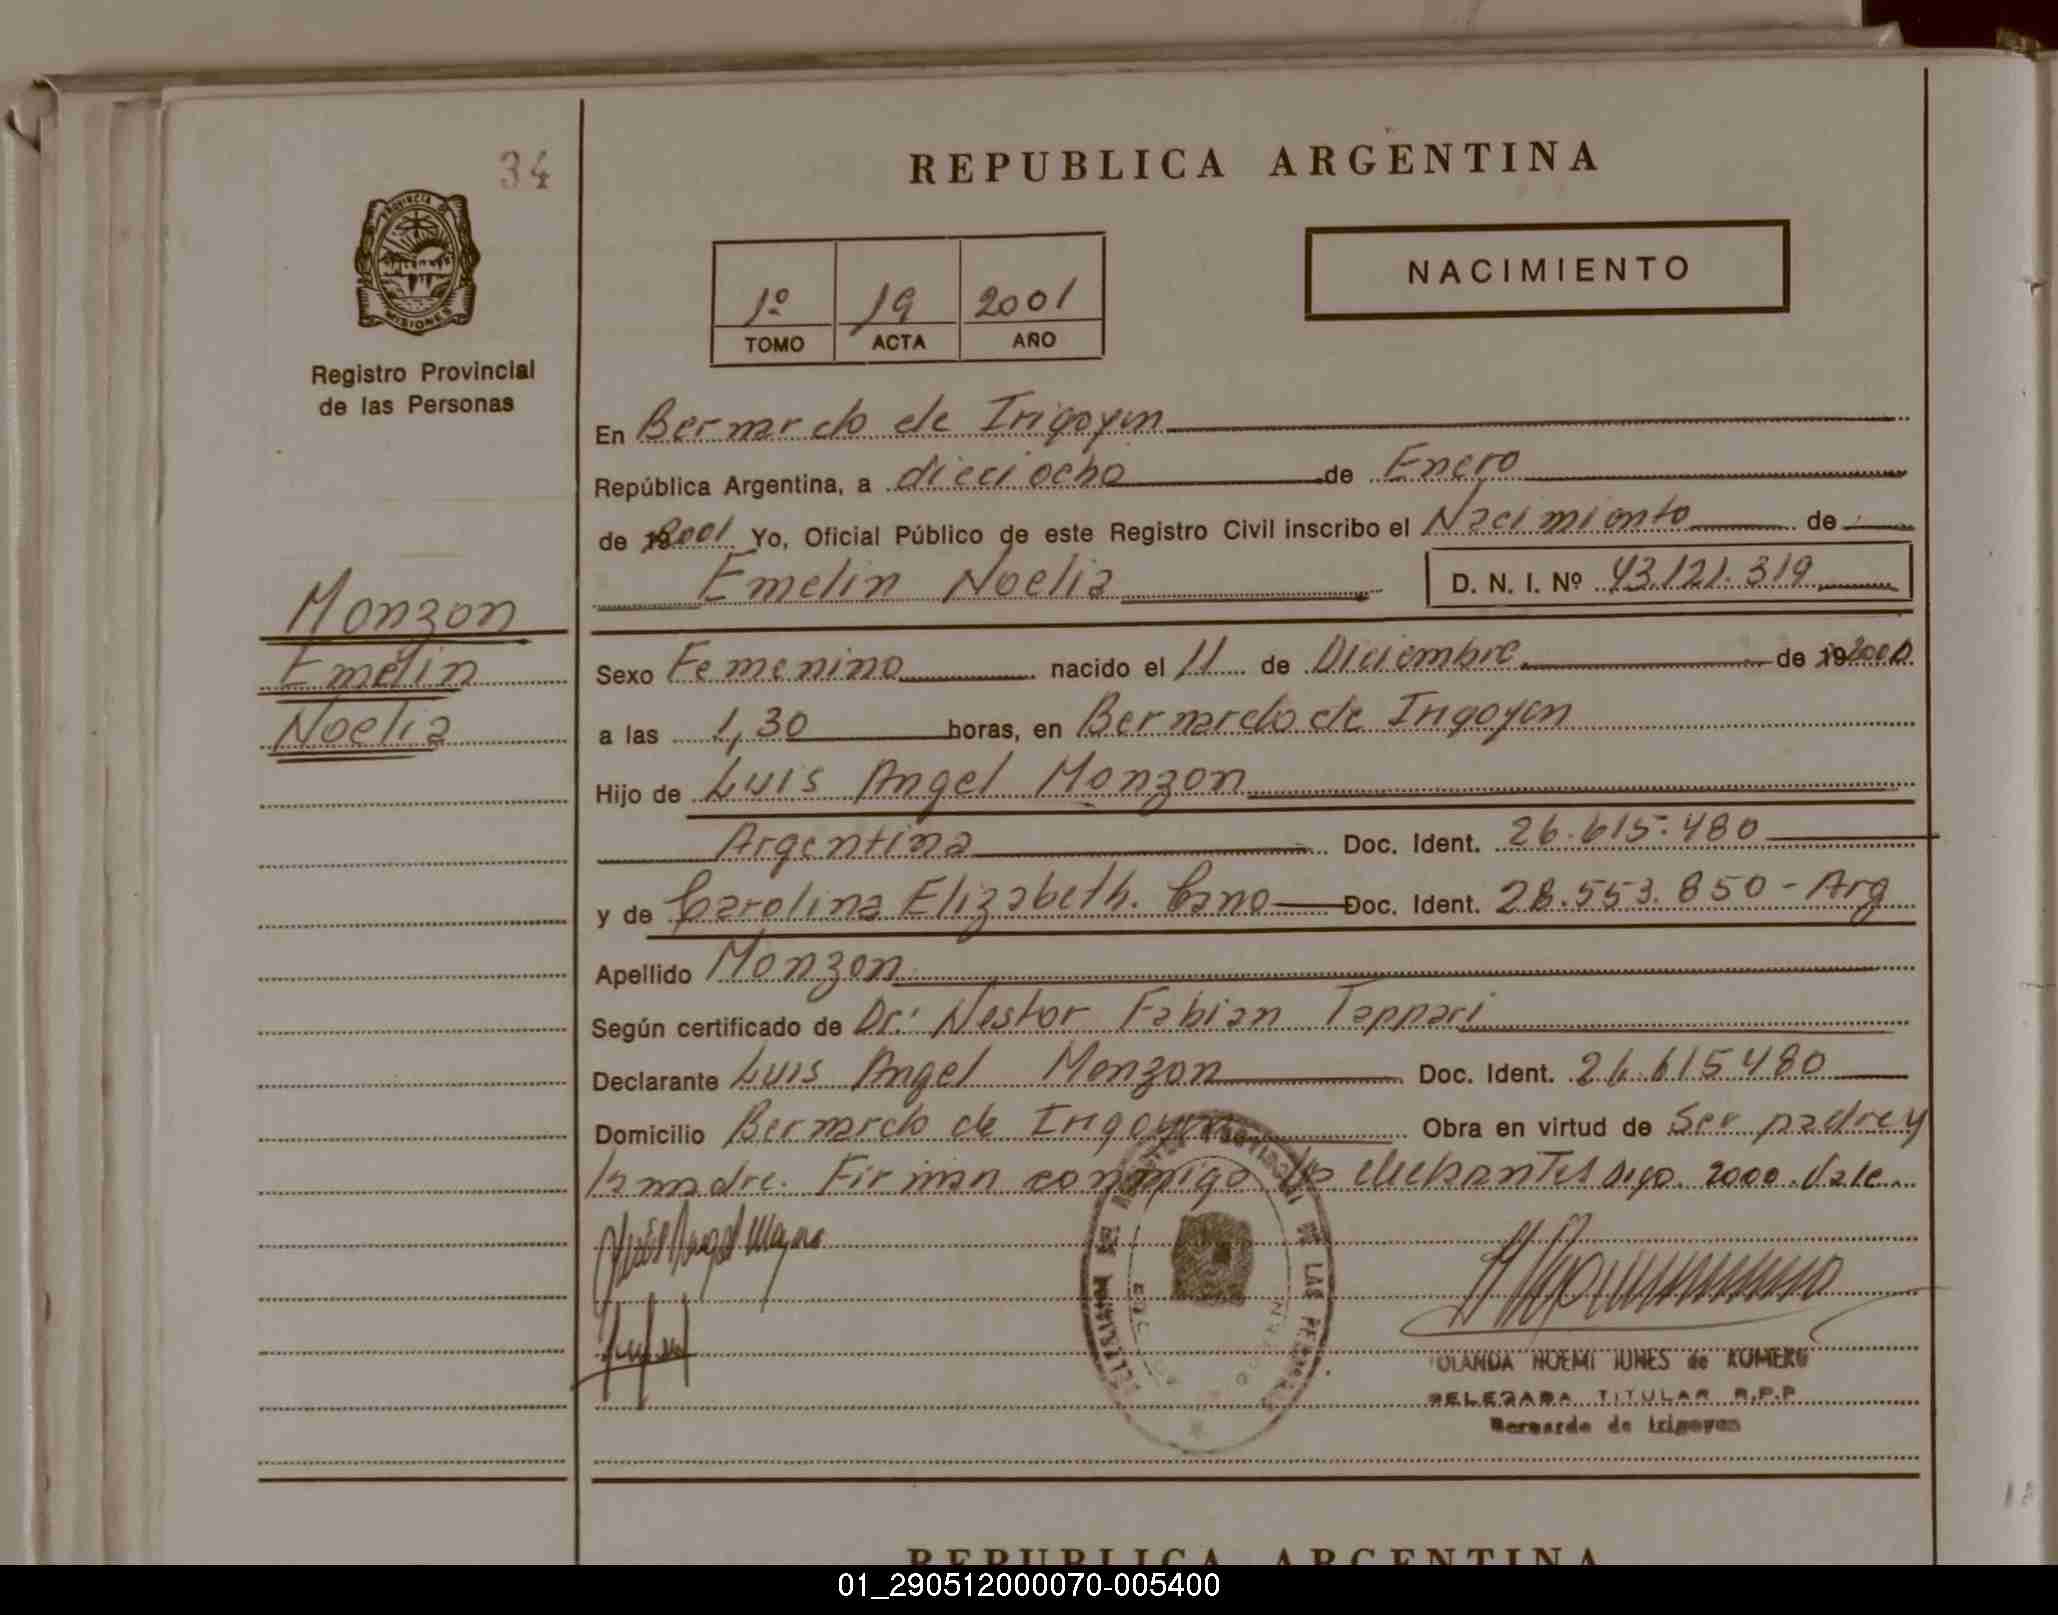 34
REPUBLICA ARGENTINA
PROVINCIA DE
MISIONES
Registro Provincial
de las Personas
1º 19 2001
TOMO ACTA AÑO
NACIMIENTO
En Bernardo de Irigoyen
República Argentina, a dieciocho de Enero
de 2001 Yo, Oficial Público de este Registro Civil inscribo el Nacimiento de
Emelin Noelia D. N. I. Nº 43.121.319
Monzon
Emelin
Noelia
Sexo Femenino nacido el 11 de Diciembre de 19 2000
a las 1,30 horas, en Bernardo de Irigoyen
Hijo de Luis Angel Monzon
Argentina Doc. Ident. 26.615.480
y de Carolina Elizabeth. Cano Doc. Ident. 28.553.850 - Arg
Apellido Monzon
Según certificado de Dr: Nestor Fabian Tappari
Declarante Luis Angel Monzon Doc. Ident. 26.615480
Domicilio Bernardo de Irigoyen Obra en virtud de Ser padre y
la madre. Firman conmigo Digo. 2000. Vale.
DE LAS
NOEMI JUNES de ROMERO
DELEGADA TITULAR R.P.P
Bernardo de Irigoyen
REPUBLICA ARGENTINA
01_290512000070-005400